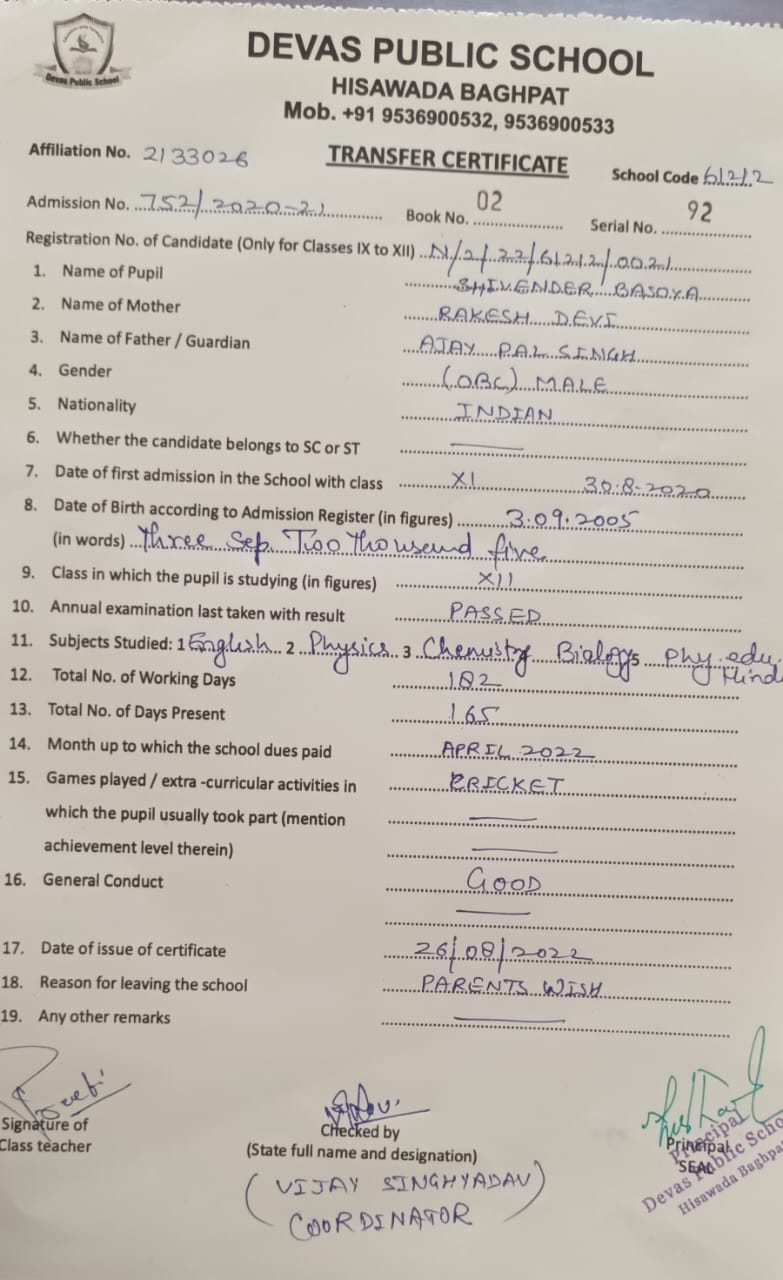 Devas Public School
DEVAS PUBLIC SCHOOL
HISAWADA BAGHPAT
Mob. +91 9536900532, 9536900533
Affiliation No. 2133026 TRANSFER CERTIFICATE School Code 61212
Admission No. 752/2020-21 Book No. 02 Serial No. 92
Registration No. of Candidate (Only for Classes IX to XII) N/2/22/61212/0021
1. Name of Pupil SHIVENDER BASOYA
2. Name of Mother RAKESH DEVI
3. Name of Father / Guardian AJAY PAL SINGH
4. Gender (OBC) MALE
5. Nationality INDIAN
6. Whether the candidate belongs to SC or ST —
7. Date of first admission in the School with class XI 30.8.2020
8. Date of Birth according to Admission Register (in figures) 3.09.2005
(in words) three Sep. Two thousend five
9. Class in which the pupil is studying (in figures) XII
10. Annual examination last taken with result PASSED
11. Subjects Studied: 1 English 2 Physics 3 Chemistry Biology 5 Phy. edu.
Hindi
12. Total No. of Working Days 182
13. Total No. of Days Present 165
14. Month up to which the school dues paid APRIL 2022
15. Games played / extra -curricular activities in CRICKET
which the pupil usually took part (mention —
achievement level therein) —
16. General Conduct GOOD
—
17. Date of issue of certificate 26/08/2022
18. Reason for leaving the school PARENTS WISH
19. Any other remarks —
Signature of
Class teacher
Checked by
(State full name and designation)
(VIJAY SINGH YADAV)
COORDINATOR
Principal
SEAL
Principal
Devas Public Scho
Hisawada Baghpat